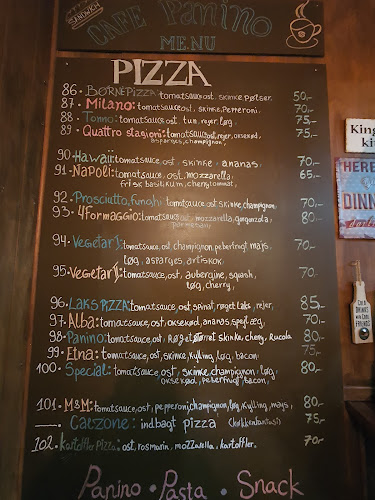 SANDWICH
CAFE Panino
MENU
PIZZA
86- BØRNEPIZZA: tomatsauce ost, skinke pølser. 50,-
87- Milano: tomatsauce ost, skinke, Peperoni. 70,-
88- Tonno: tomatsauce ost tun, rejer, løg, 75,-
89- Quattro stagioni: tomatsauce ost, rejer, oksekød, 75,-
asparges, champignon,
90- Hawaii: tomatsauce, ost, skinke, ananas, 70,-
91- NaPoli: tomatsauce, ost, mozzarella, 65,-
frisk basilikum, cherrytomat,
92- Prosciutto, funghi: tomatsauce ost, skinke, champignon, 70,-
93- 4 formaggio: tomatsauce ost, mozzarella, gorgonzola 80,-
parmesan
94- Vegetar 1: tomatsauce, ost, champignon, peberfrugt majs, 70,-
løg, asparges, artiskok,
95- Vegetar 2: tomatsauce, ost, aubergine, squash, 70,-
løg, cherry,
96- Laks PIZZA: tomatsauce, ost, spinat, røget laks, rejer, 85,-
97- Alba: tomatsauce, ost, oksekød, ananas, spejl æg, 70,-
98- Panino: tomatsauce, ost, skinke, cherry, Rucola 80,-
99- Etna: tomatsauce, ost, skinke, kylling, løg, bacon 75,-
100- Special: tomatsauce, ost, skinke, champignon, løg, 80,-
oksekød, peberfrugt, bacon,
101- M&M: tomatsauce, ost, pepperoni, champignon, løg, kylling, majs, 80,-
Calzone: indbagt pizza (køkkenfantasi) 75,-
102- Kartoffle Pizza: ost, rosmarin, mozzarella, kartofler. 70,-
Panino • Pasta • Snack
King
HERE
DINN